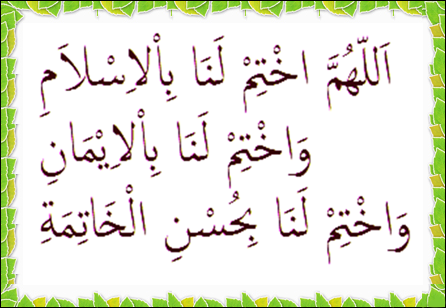 اَللّٰهُمَّ اخْتِمْ لَنَا بِاْلاِسْلاَمِ
وَاخْتِمْ لَنَا بِاْلاِيْمَانِ
وَاخْتِمْ لَنَا بِحُسْنِ الْخَاتِمَةِ